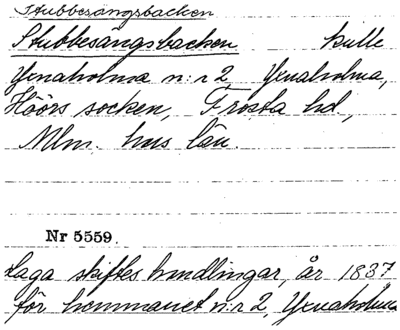 Stubbesängsbacken
Stubbesängsbacken kulle
Yxnaholma n:r 2 Yxnaholma,
Höörs socken, Frosta hd,
Mlm. hus län
Nr 5559.
Laga skiftes handlingar, år 1837
för hemmanet n:r 2, Yxnaholma